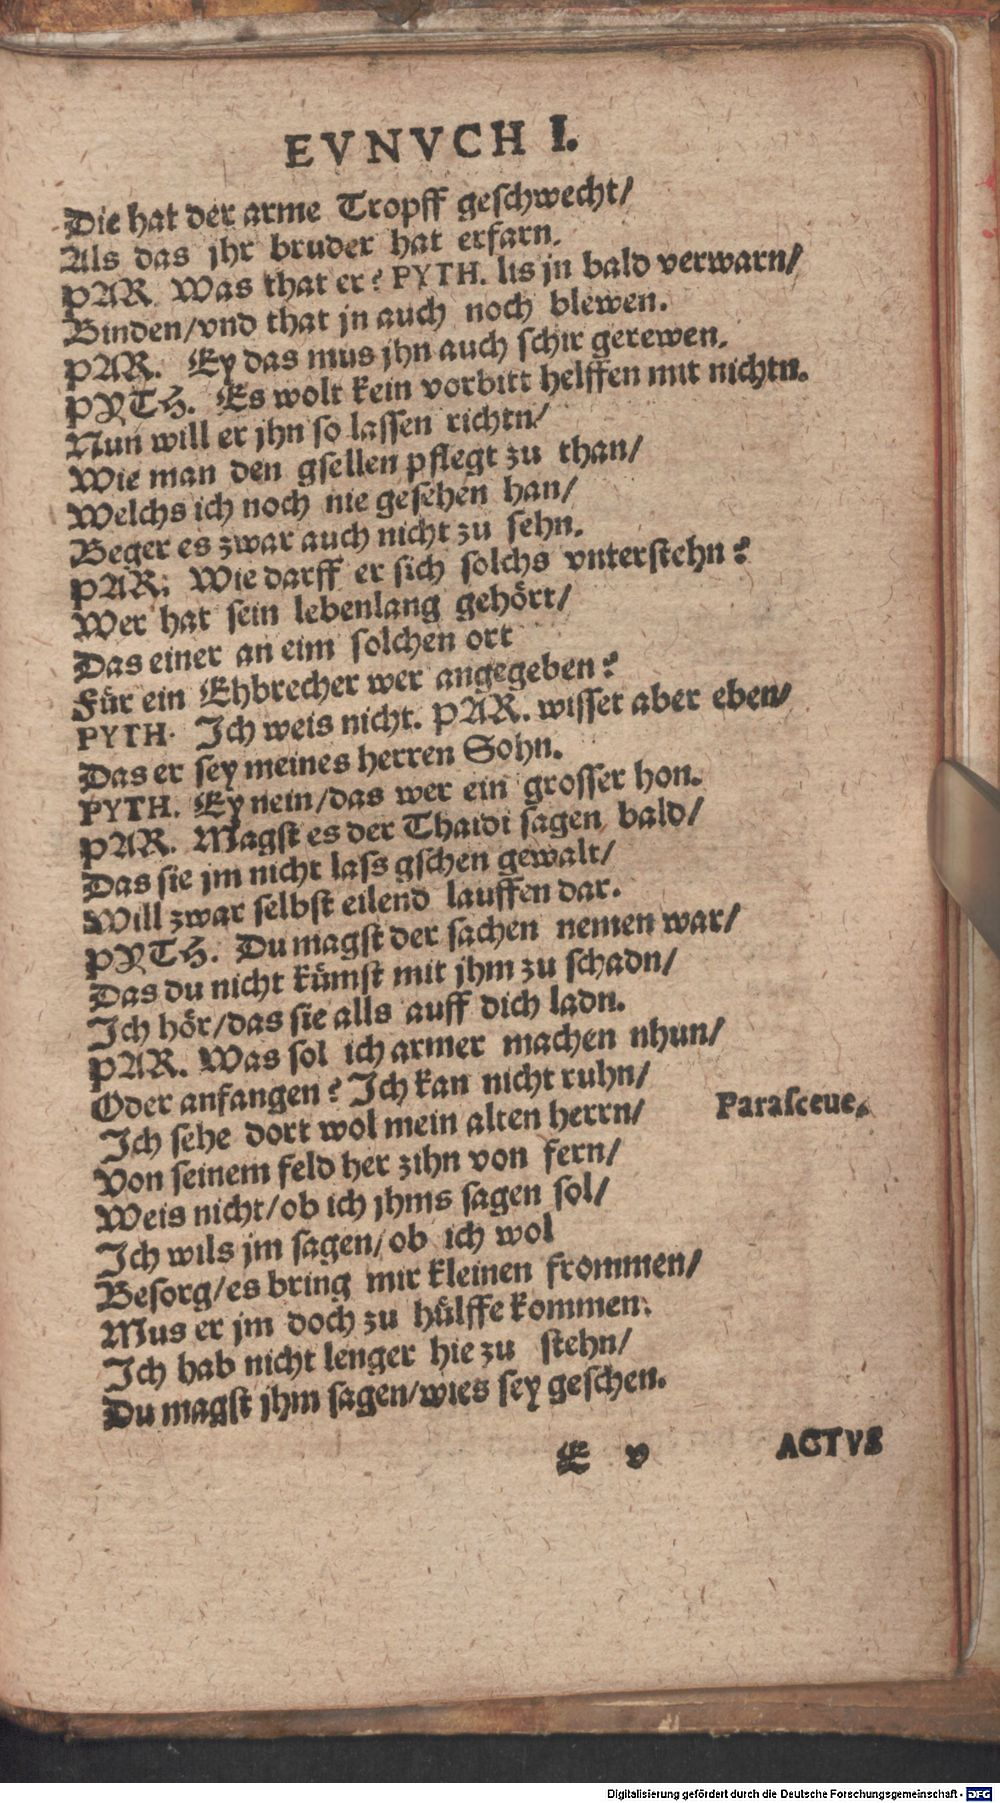 EVNVCH I.
Die hat der arme Tropff geschwecht/
Als das jhr bruder hat erfarn.
PAR. Was that er? PYTH. lis jn bald verwarn/
Binden/vnd that jn auch noch blewen.
PAR. Ey das mus jhn auch schir gerewen.
PYTH. Es wolt kein vorbitt helffen mit nichtn.
Nun will er jhn so lassen richtn/
Wie man den gsellen pflegt zu than/
Welchs ich noch nie gesehen han/
Beger es zwar auch nicht zu sehn.
PAR: Wie darff er sich solchs vnterstehn?
Wer hat sein lebenlang gehört/
Das einer an eim solchen ort
Für ein Ehbrecher wer angegeben?
PYTH. Ich weis nicht. PAR. wisset aber eben/
Das er sey meines herren Sohn.
PYTH. Ey nein/das wer ein grosser hon.
PAR. Magst es der Thaidi sagen bald/
Das sie jm nicht lass gschen gewalt/
Will zwar selbst eilend lauffen dar.
PYTH. Du magst der sachen nemen war/
Das du nicht kümst mit jhm zu schadn/
Ich hör/das sie alls auff dich ladn.
PAR. Was sol ich armer machen nhun/
Oder anfangen? Ich kan nicht ruhn/
Ich sehe dort wol mein alten herrn/ Parasceue.
Von seinem feld her zihn von fern/
Weis nicht/ob ich jhms sagen sol/
Ich wils jm sagen/ob ich wol
Besorg/es bring mir kleinen frommen/
Mus er jm doch zu hülffe kommen.
Ich hab nicht lenger hie zu stehn/
Du magst jhm sagen/wies sey geschen.
E v ACTVS
Digitalisierung gefördert durch die Deutsche Forschungsgemeinschaft - DFG